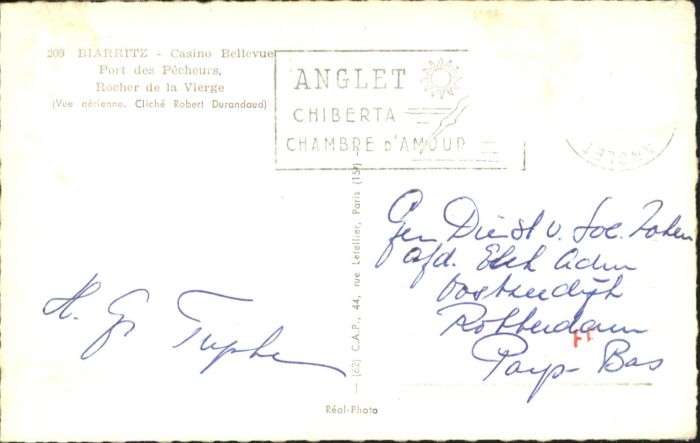 209 BIARRITZ - Casino Bellevue
Port des Pêcheurs,
Rocher de la Vierge
(Vue aérienne. Cliché Robert Durandaud)
ANGLET
CHIBERTA
CHAMBRE D'AMOUR
ANGLET
(62) C.A.P., 44, rue Letellier, Paris (15e)
H. Gr
Gem Dienst v. Soc. Zaken
afd. Adm
Rotterdam
Pays-Bas
Réal-Photo